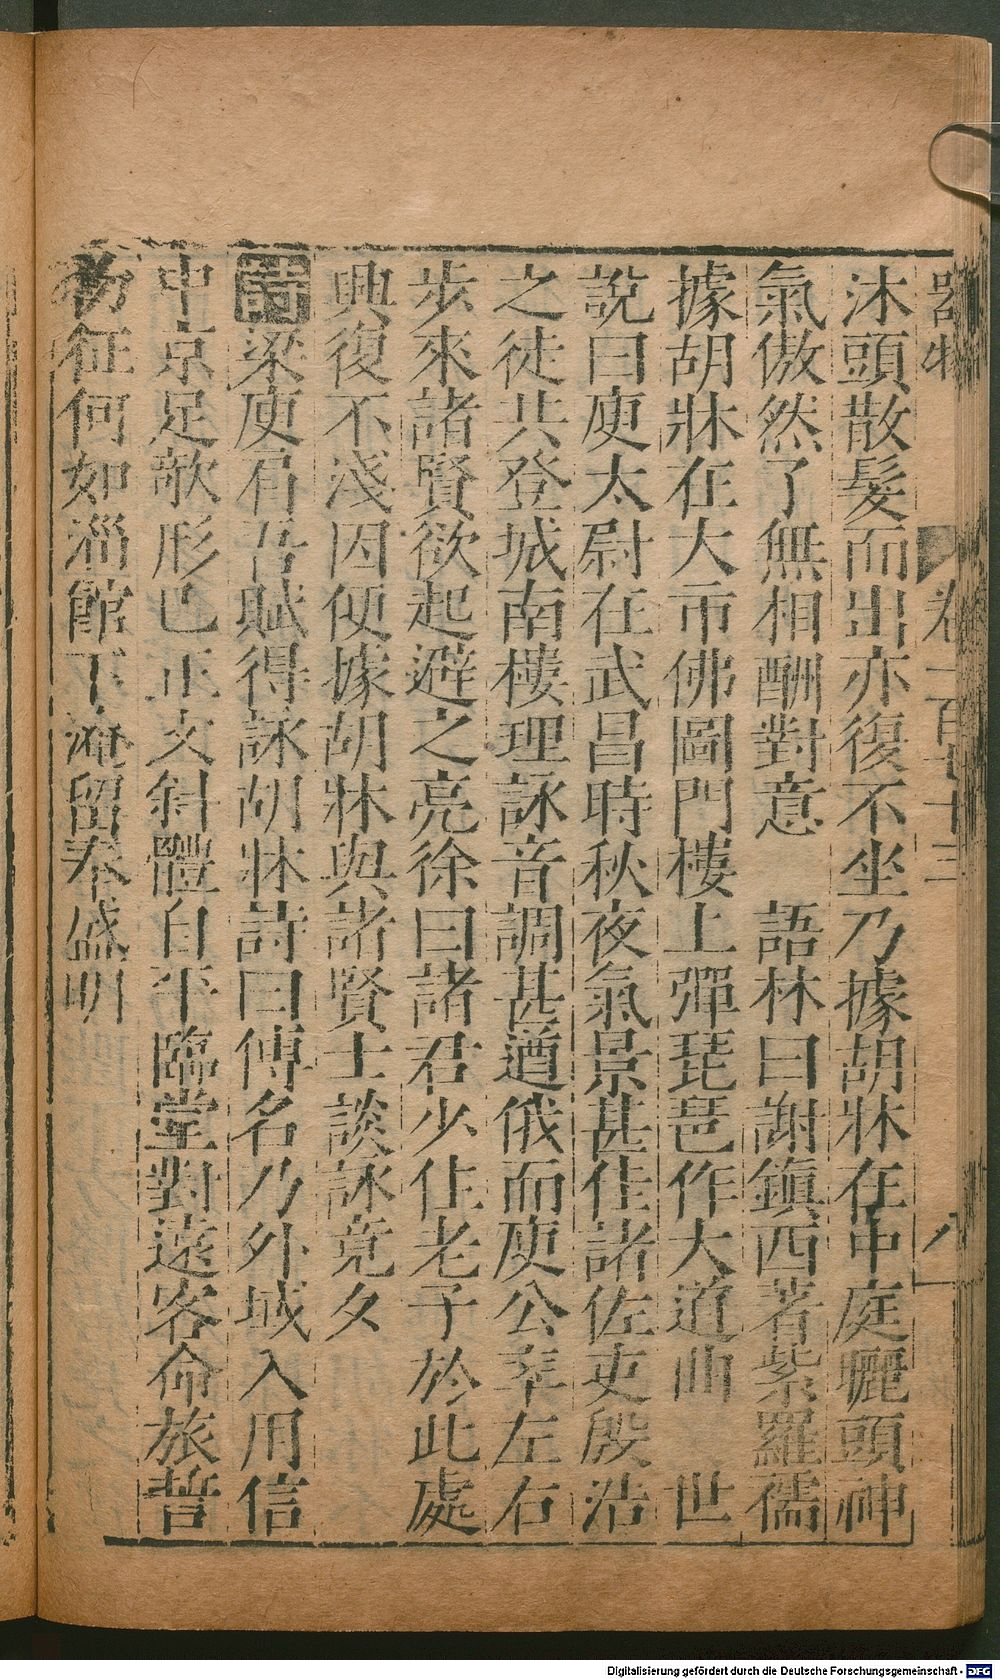 沐頭散髮而出亦復不坐乃據胡牀在中庭曬頭神
氣傲然了無相酬對意　語林曰謝鎮西著紫羅襦
據胡牀在大市佛圖門樓上彈琵琶作大道曲　世
說曰庾太尉在武昌時秋夜氣景甚佳諸佐吏殷浩
之徒共登城南樓理詠音調甚遒俄而庾公率左右
步來諸賢欲起避之亮徐曰諸君少住老子於此處
興復不淺因便據胡牀與諸賢士談詠竟夕
詩梁庾肩吾賦得詠胡牀詩曰傳名乃外域入用信
中京足欹形已正文斜體自平臨堂對遠客命旅誓
初征何如淄館下淹留奉盛明
器物 卷一百七十三 八
Digitalisierung gefördert durch die Deutsche Forschungsgemeinschaft - DFG